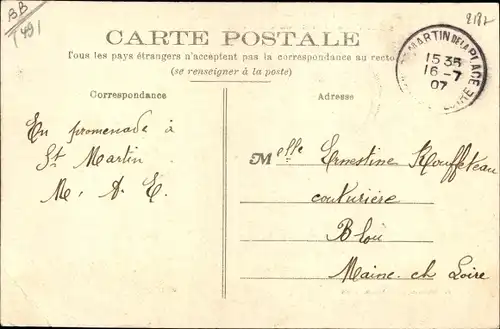 BB
(491
2182
CARTE POSTALE
Tous les pays étrangers n'acceptent pas la correspondance au recto
(se renseigner à la poste)
ST MARTIN DE LA PLACE
15 35
16 - 7
07
LOIRE
Correspondance
En promenade à
St Martin
M. A. E.
Adresse
Melle Ernestine Rouffeteau
couturière
Blou
Maine et Loire